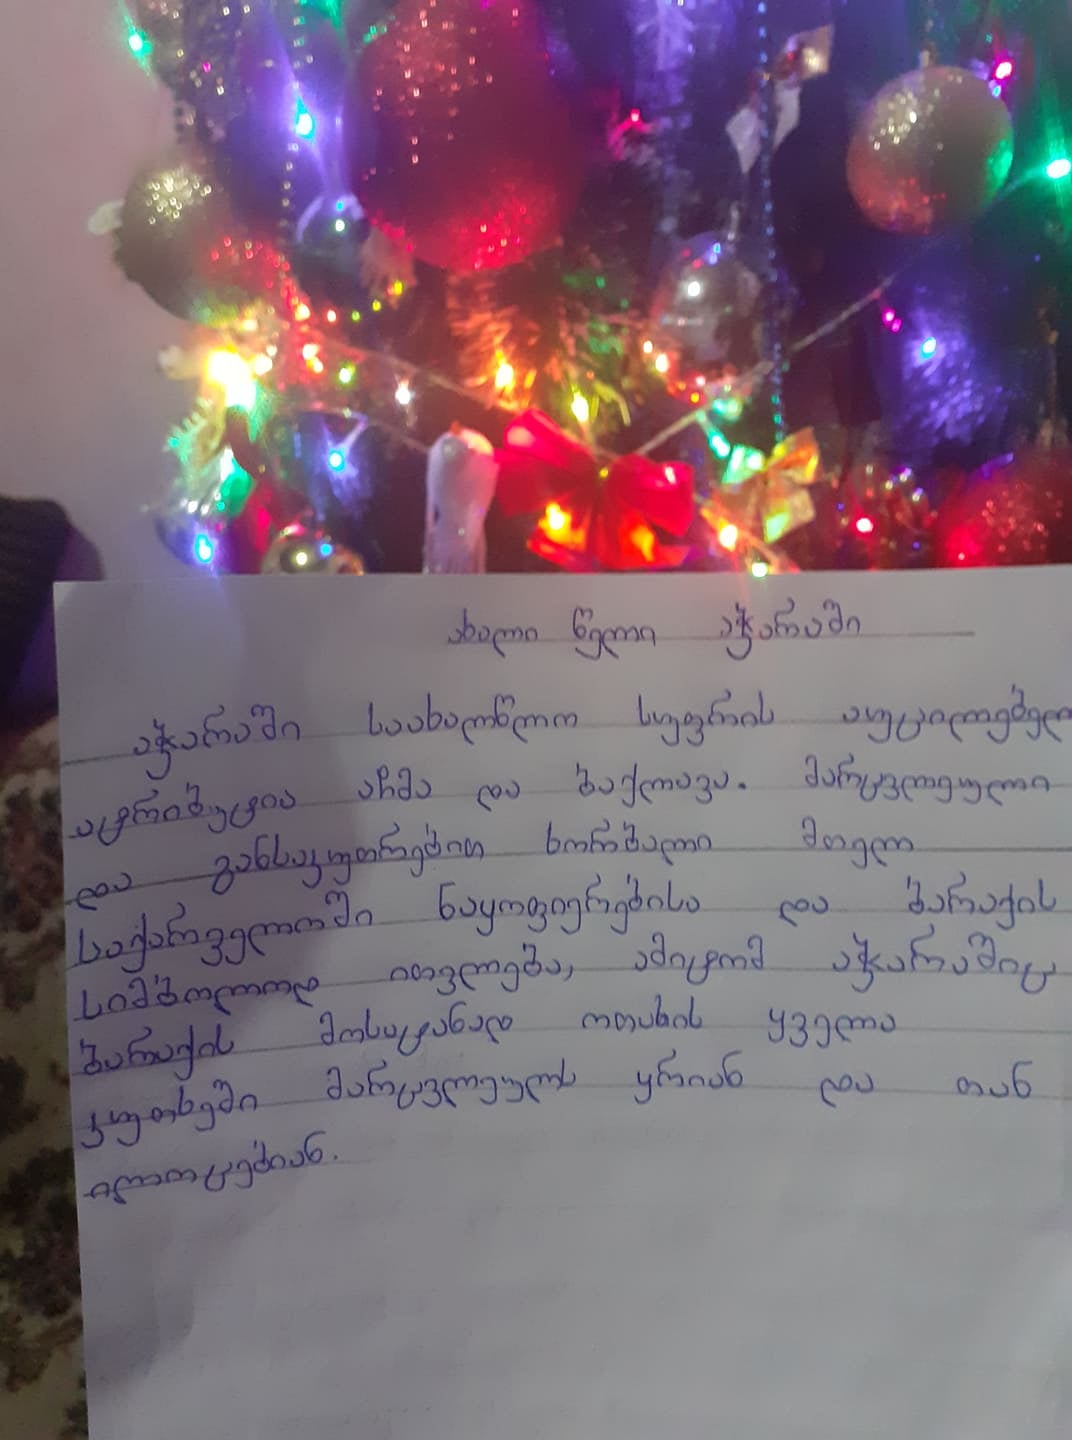 ახალი წელი აჭარაში
აჭარაში საახალწლო სუფრის აუცილებელი
ატრიბუტია აჩმა და ბაქლავა. მარცვლეული
და განსაკუთრებით ხორბალი მთელ
საქართველოში ნაყოფიერებისა და ბარაქის
სიმბოლოდ ითვლება, ამიტომ აჭარაშიც
ბარაქის მოსატანად ოთახის ყველა
კუთხეში მარცვლეულს ყრიან და თან
ილოცებიან.